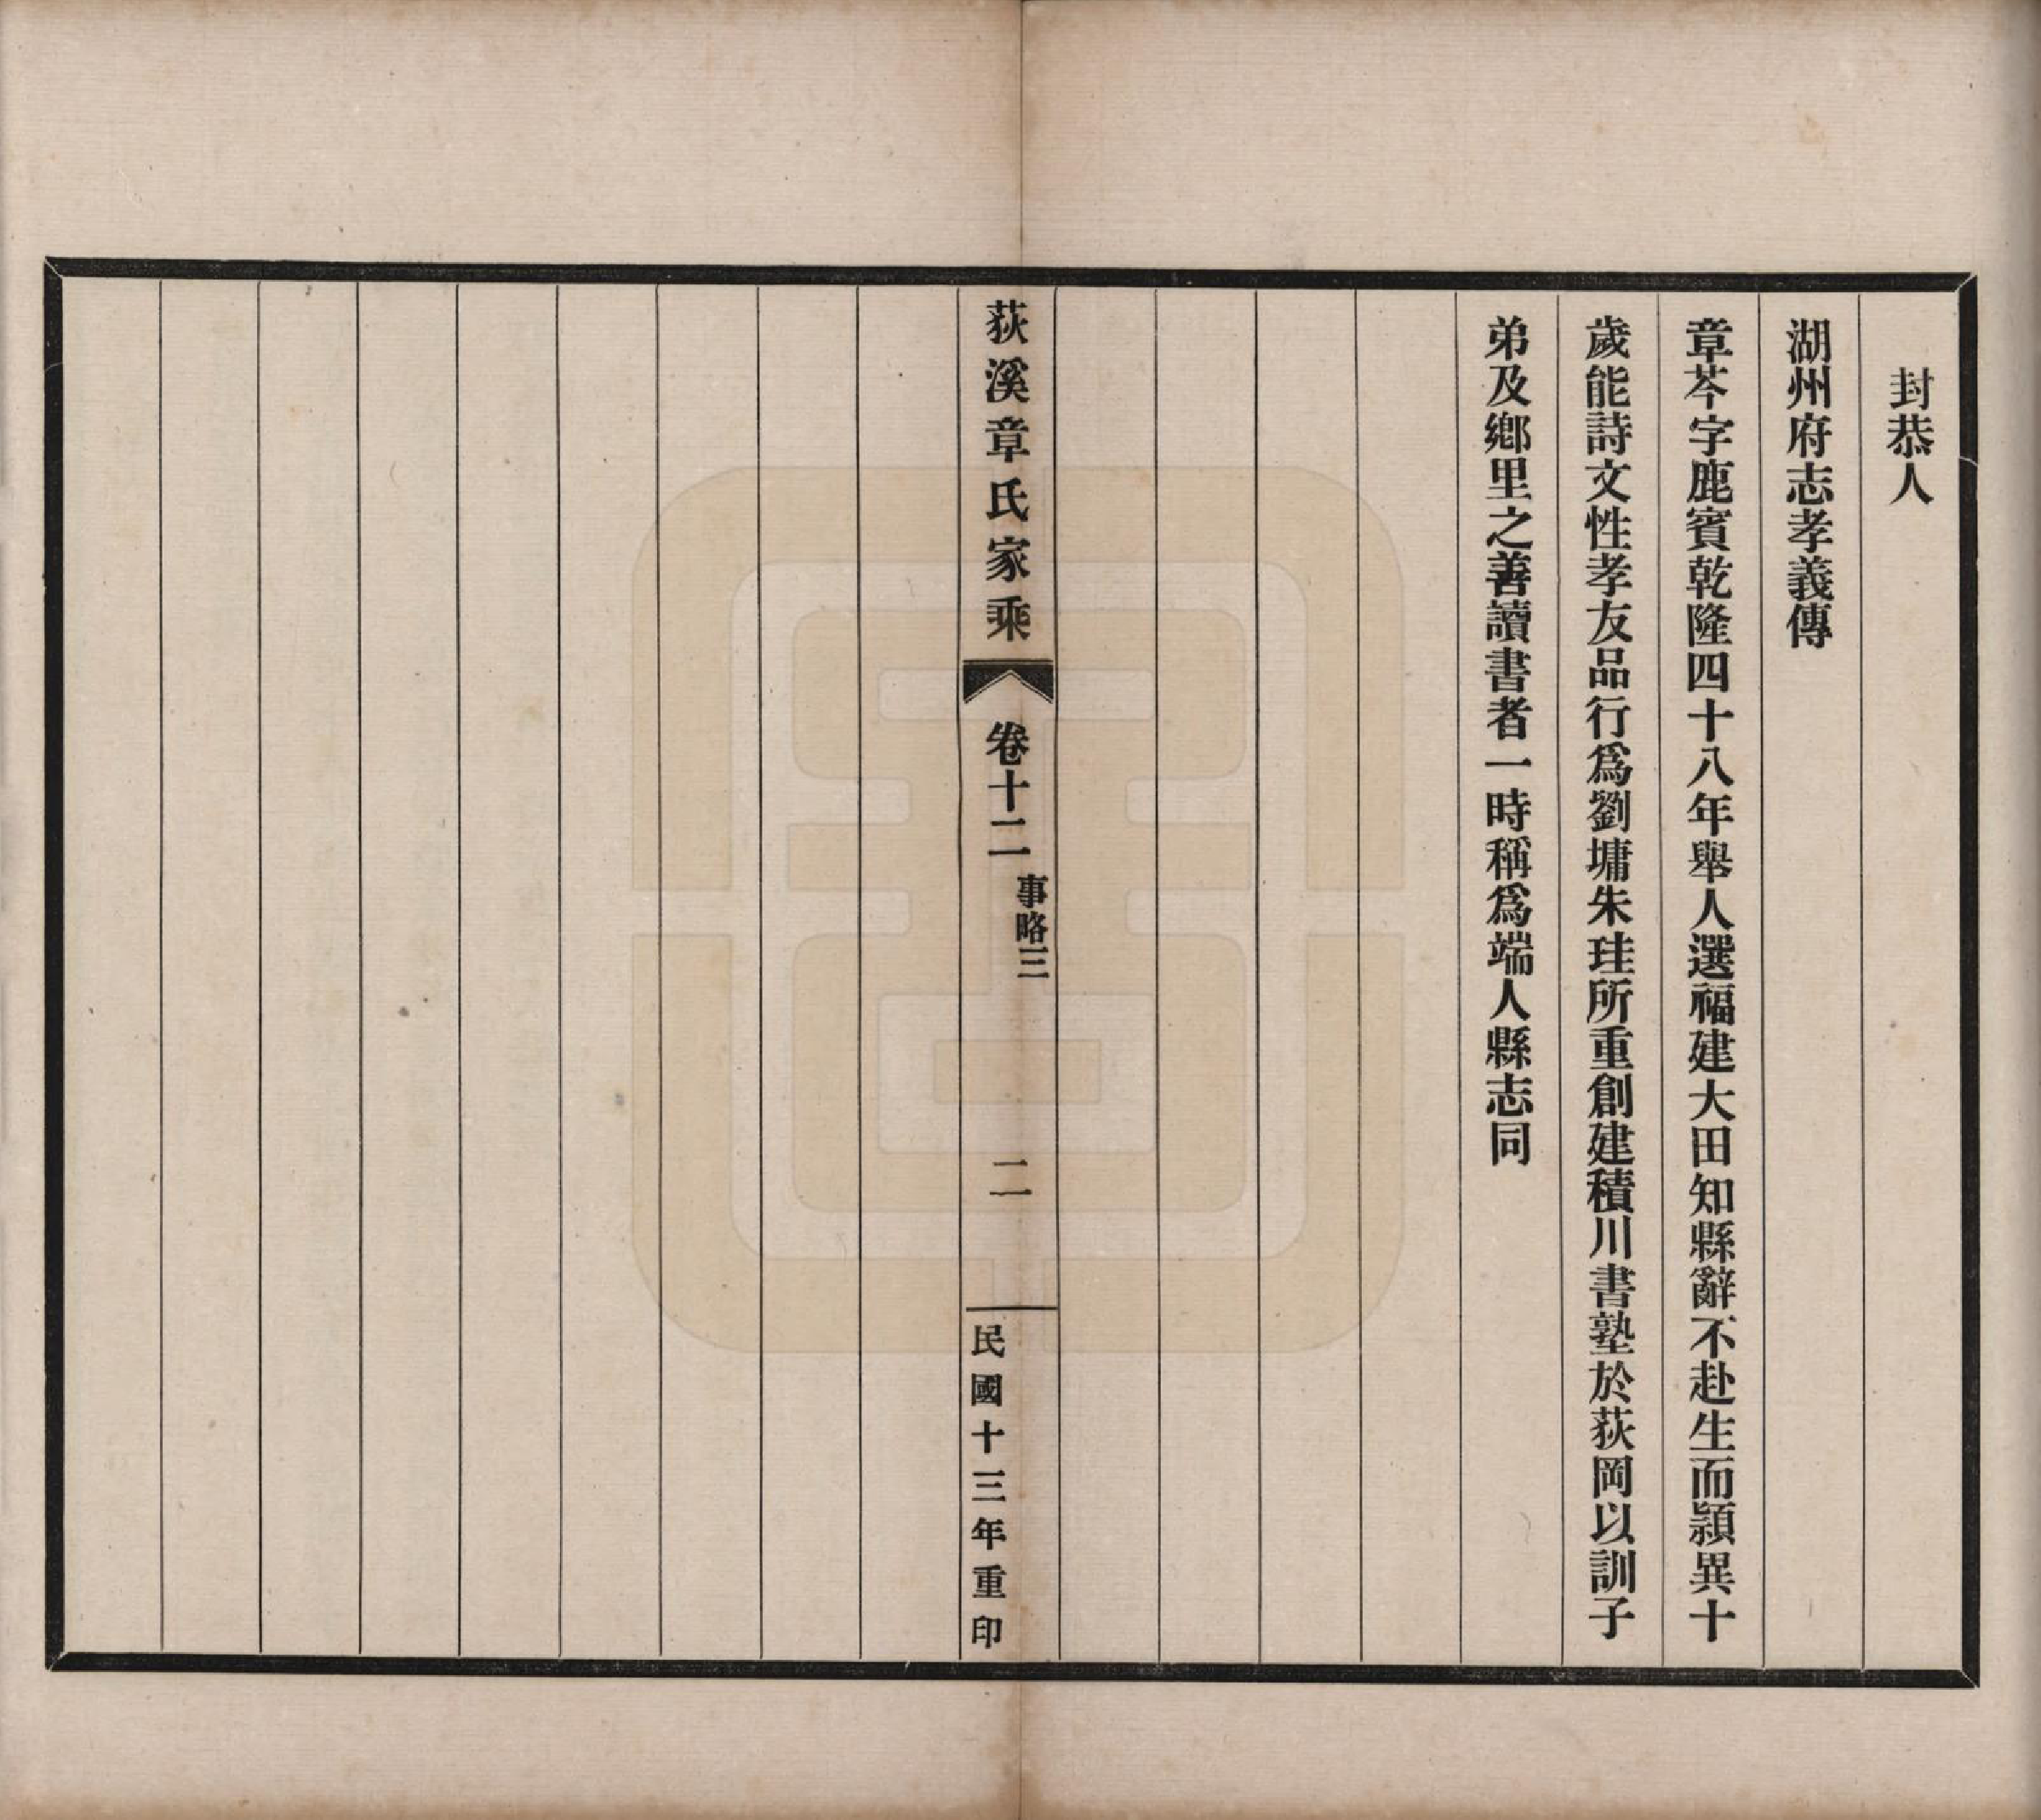 封恭人
湖州府志孝義傳
章芩字鹿賓乾隆四十八年舉人選福建大田知縣辭不赴生而穎異十
歲能詩文性孝友品行爲劉墉朱珪所重創建積川書塾於荻岡以訓子
弟及鄉里之善讀書者一時稱爲端人縣志同
荻溪章氏家乘
卷十二
事略三
二
民國十三年重印